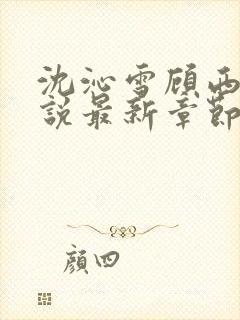 沈沁雪顾西
說最新章節
颜四